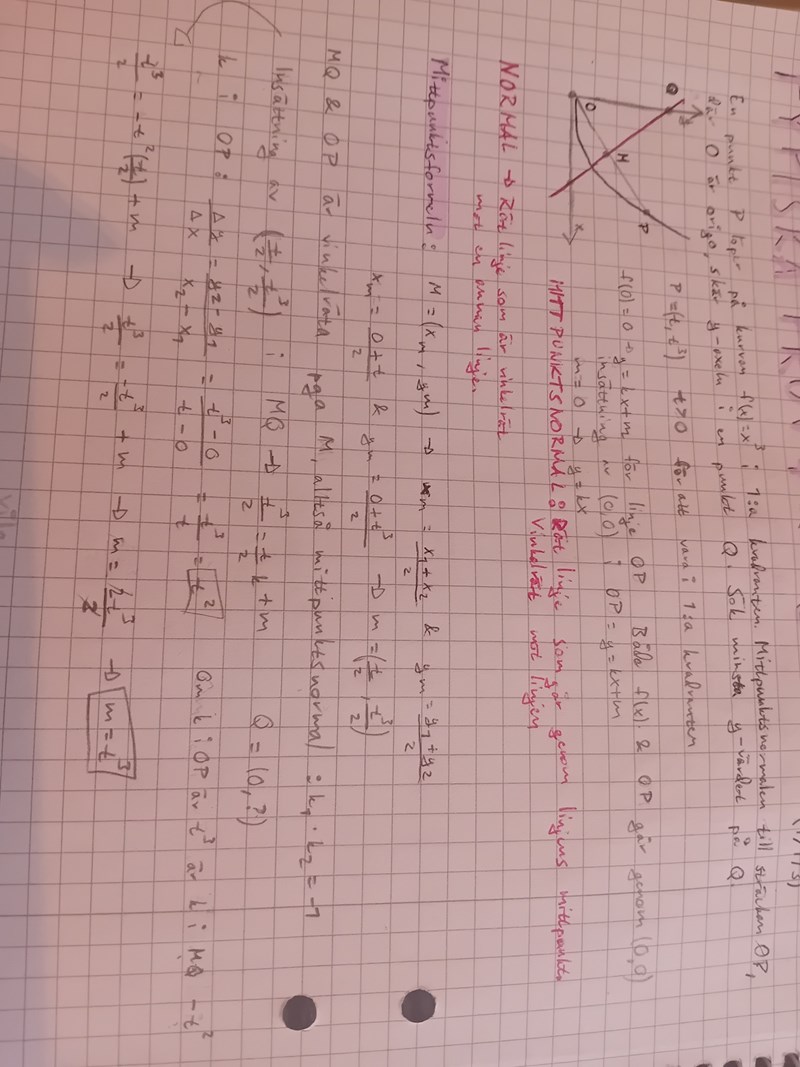 En punkt P löper på kurvan f(x)=x³ i 1:a kvadranten. Mittpunktsnormalen till sträckan OP,
där O är origo, skär y-axeln i en punkt Q. Sök minsta y-värdet på Q.
P=(t, t³) t>0 för att vara i 1:a kvadranten
Q
y
O
M
P
x
f(0)=0 → y=kx+m för linje OP Båda f(x) & OP går genom (0,0)
insättning av (0,0) i OP = y=kx+m
m=0 → y=kx
MITTPUNKTSNORMAL: Rät linje som går genom linjens mittpunkt.
Vinkelrät mot linjen
NORMAL → Rät linje som är vinkelrät
mot en annan linje.
Mittpunktsformeln: M=(xm, ym) → xm = x1+x2/2 & ym = y1+y2/2
xm = 0+t/2 & ym = 0+t³/2 → m=(t/2, t³/2)
MQ & OP är vinkelräta pga M, alltså mittpunktsnormal: k1·k2=-1
Insättning av (t/2, t³/2) i MQ → t³/2 = t/2 k+m Q=(0,?)
k i OP: Δy/Δx = y2-y1/x2-x1 = t³-0/t-0 = t³/t = t² Om k i OP är t³ är k i MQ -t²
t³/2 = -t²(t/2)+m → t³/2 = -t³/2 + m → m = 2t³/2 → m=t³